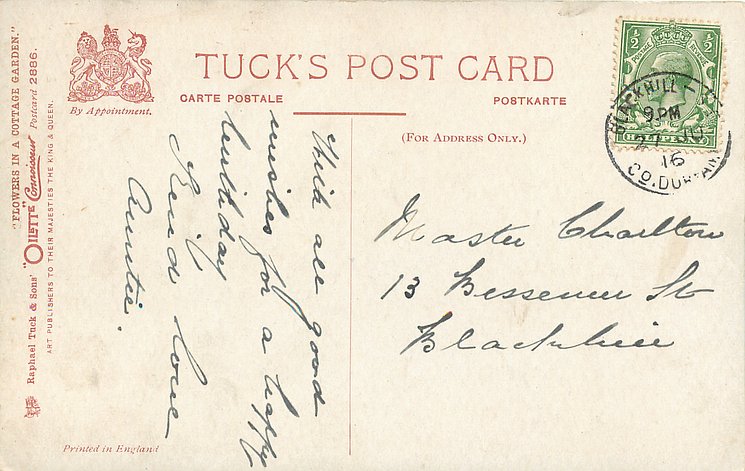 "FLOWERS IN A COTTAGE GARDEN."
Raphael Tuck & Sons' "OILETTE" Connoisseur Postcard 2886.
ART PUBLISHERS TO THEIR MAJESTIES THE KING & QUEEN.
By Appointment.
TUCK'S POST CARD
CARTE POSTALE
POSTKARTE
(FOR ADDRESS ONLY.)
½ ½
POSTAGE
HALFPENNY
BLACKHILL
9.PM
27 10
16
CO. DURHAM
With all good
wishes for a happy
birthday
love
Auntie.
Master Charlton
13 Bessemer St
Blackhill
Printed in England